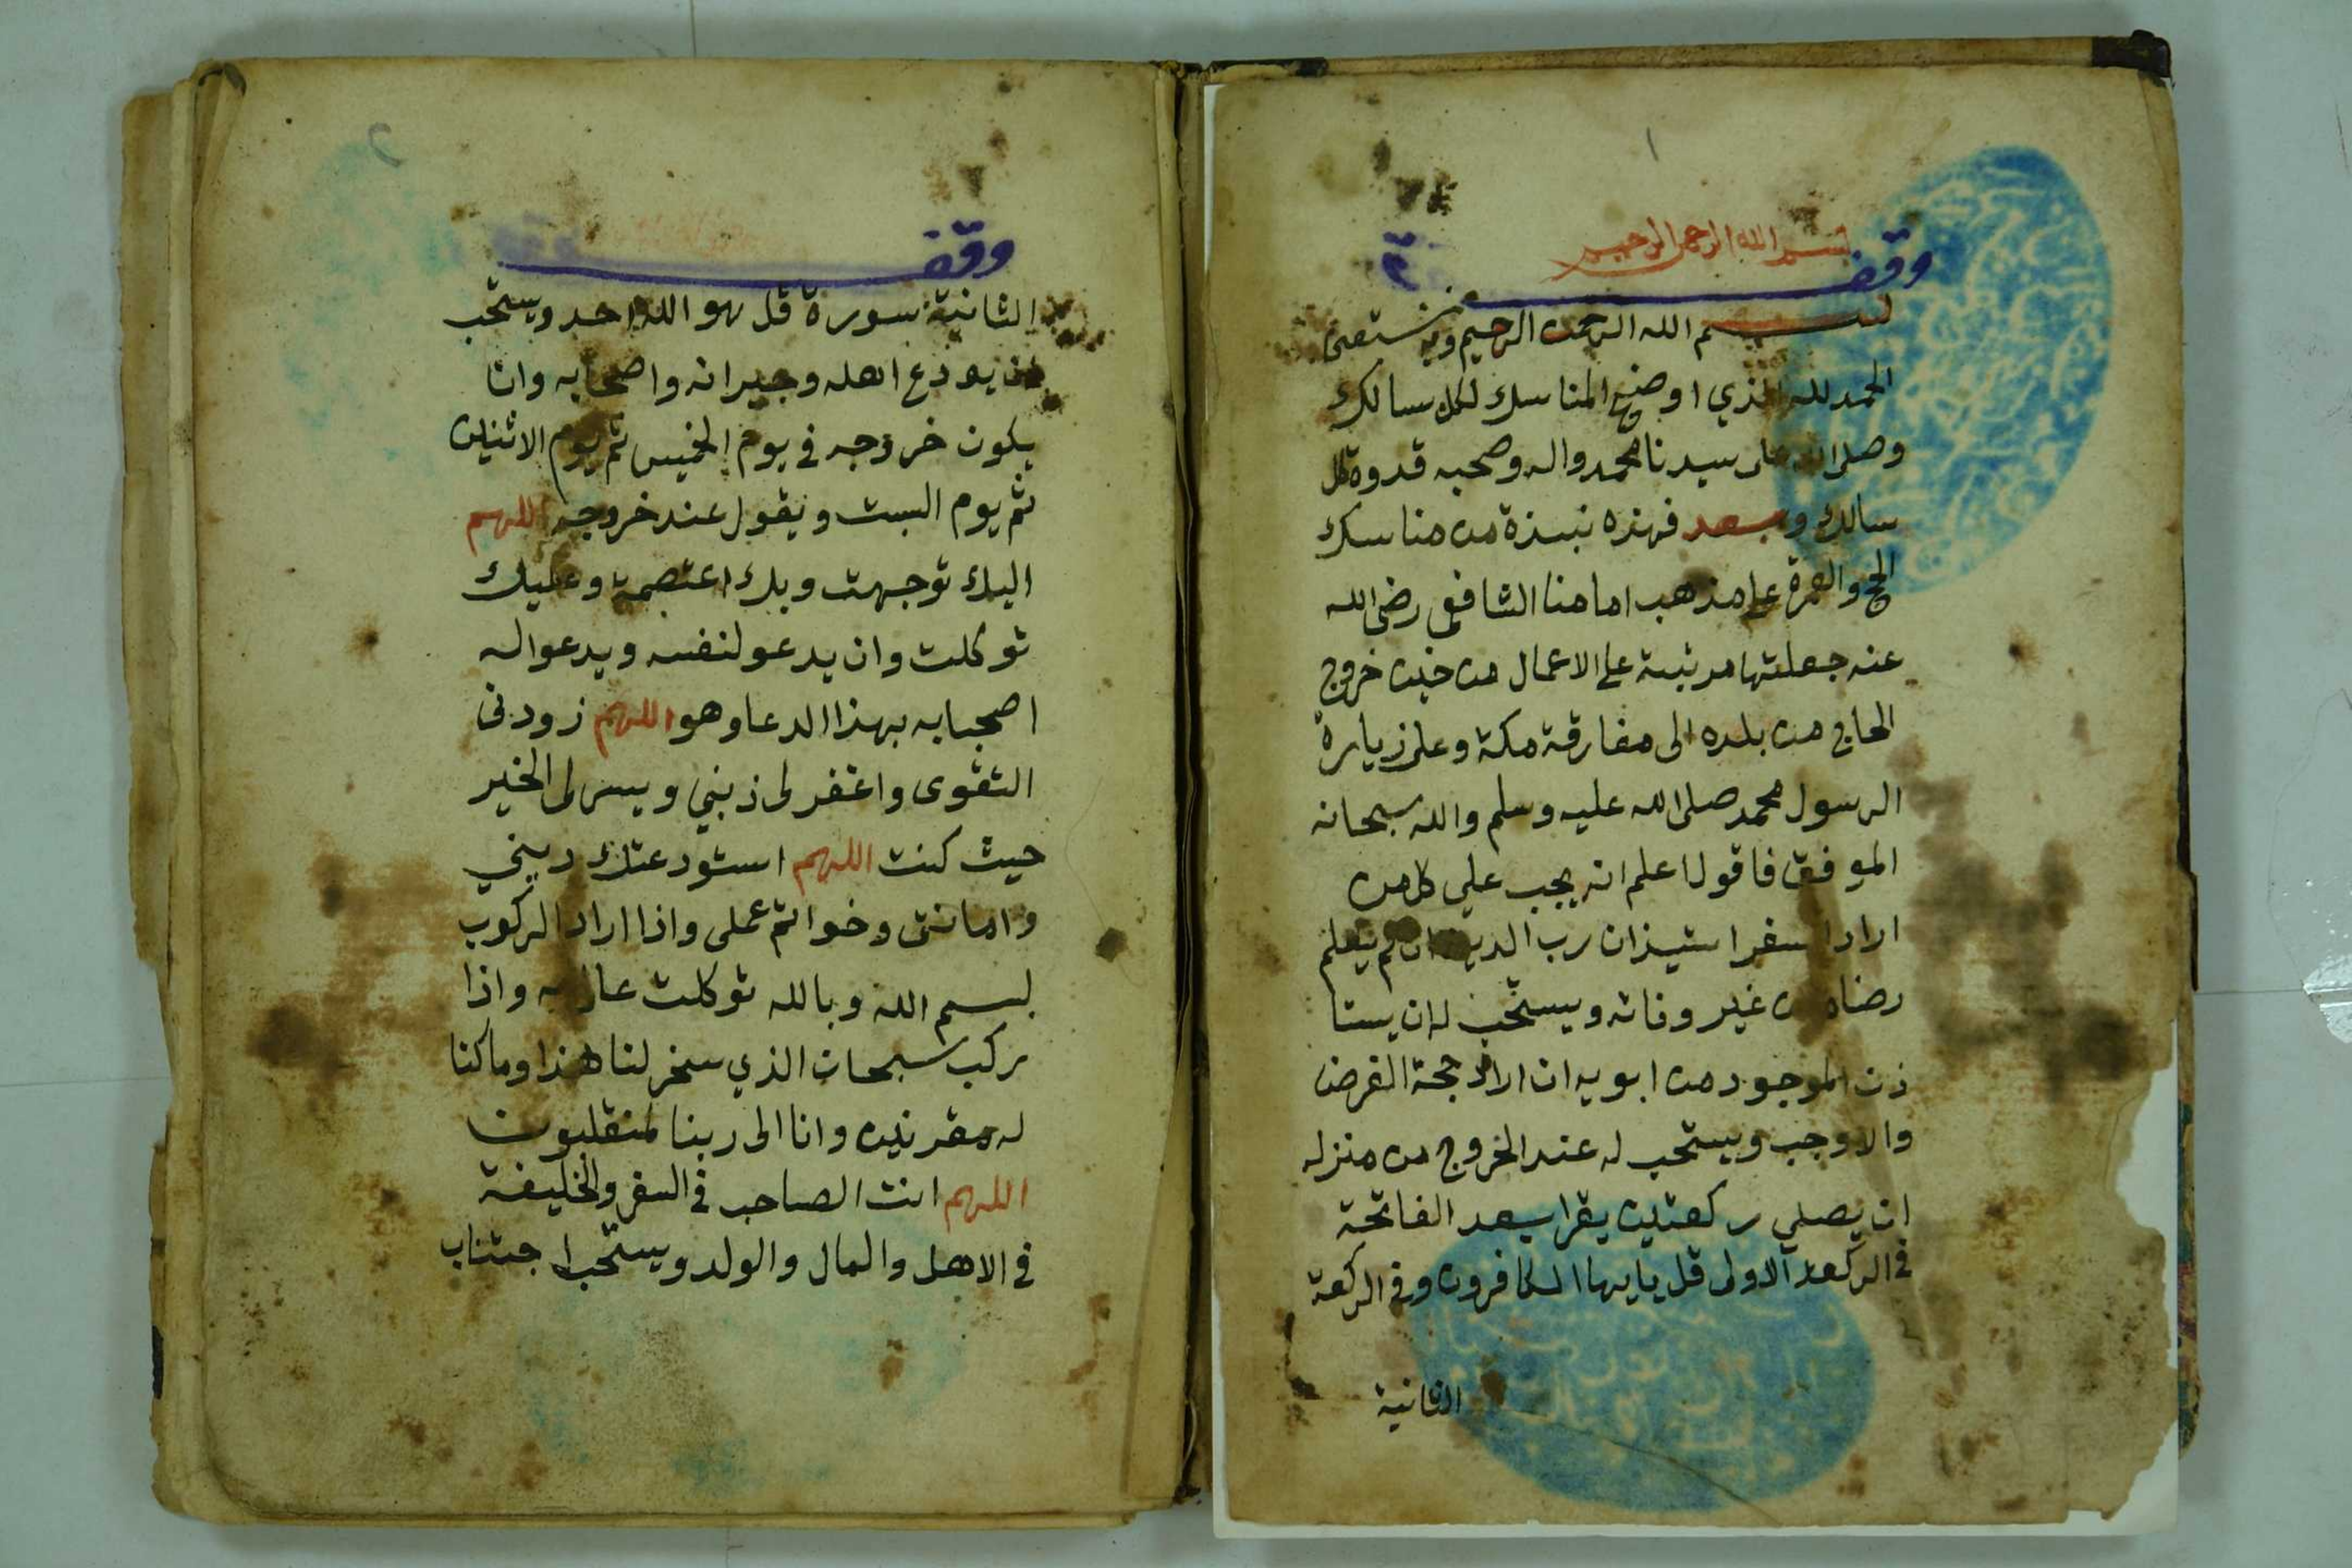 ١
بسم الله الرحمن الرحيم
وقف
بسم الله الرحمن الرحيم وبه نستعين
الحمد لله الذي اوضح المناسك لكل سالك
وصلى الله على سيدنا محمد واله وصحبه قدوة كل
سالك وبعد فهذه نبذة من مناسك
الحج والعمرة على مذهب امامنا الشافعي رضى الله
عنه جعلتها مرتبة على الاعمال من حين خروج
الحاج من بلده الى مفارقة مكة وعلى زيارة
الرسول محمد صلى الله عليه وسلم والله سبحانه
الموفق فاقول اعلم انه يجب على كل من
اراد سفرا ستيذان رب الدين ان لم يعلم
رضاه من غير وفائه ويستحب له ان يستا
ذن الموجود من ابويه ان اراد حجة الفرض
والا وجب ويستحب له عند الخروج من منزله
ان يصلي ركعتين يقرا بعد الفاتحة
في الركعة الاولى قل يايها الكافرون وفي الركعة
الثانية
٢
وقف
الثانية سورة قل هو الله احد ويستحب
ان يودع اهله وجيرانه واصحابه وان
يكون خروجه في يوم الخميس ثم يوم الاثنين
ثم يوم السبت ويقول عند خروجه اللهم
اليك توجهت وبك اعتصمة وعليك
توكلت وان يدعو لنفسه ويدعوا له
اصحبابه بهذا الدعا وهو اللهم زودنى
التقوى واغفر لى ذنبي ويسر لى الخير
حيث كنت اللهم استودعتك ديني
وامانتى وخواتم عملى واذا اراد الركوب
بسم الله وبالله توكلت على الله واذا
ركب سبحان الذي سخر لنا هذا وما كنا
له مقرنين وانا الى ربنا لمنقلبون
اللهم انت الصاحب في السفر والخليفة
في الاهل والمال والولد ويستحب اجتناب